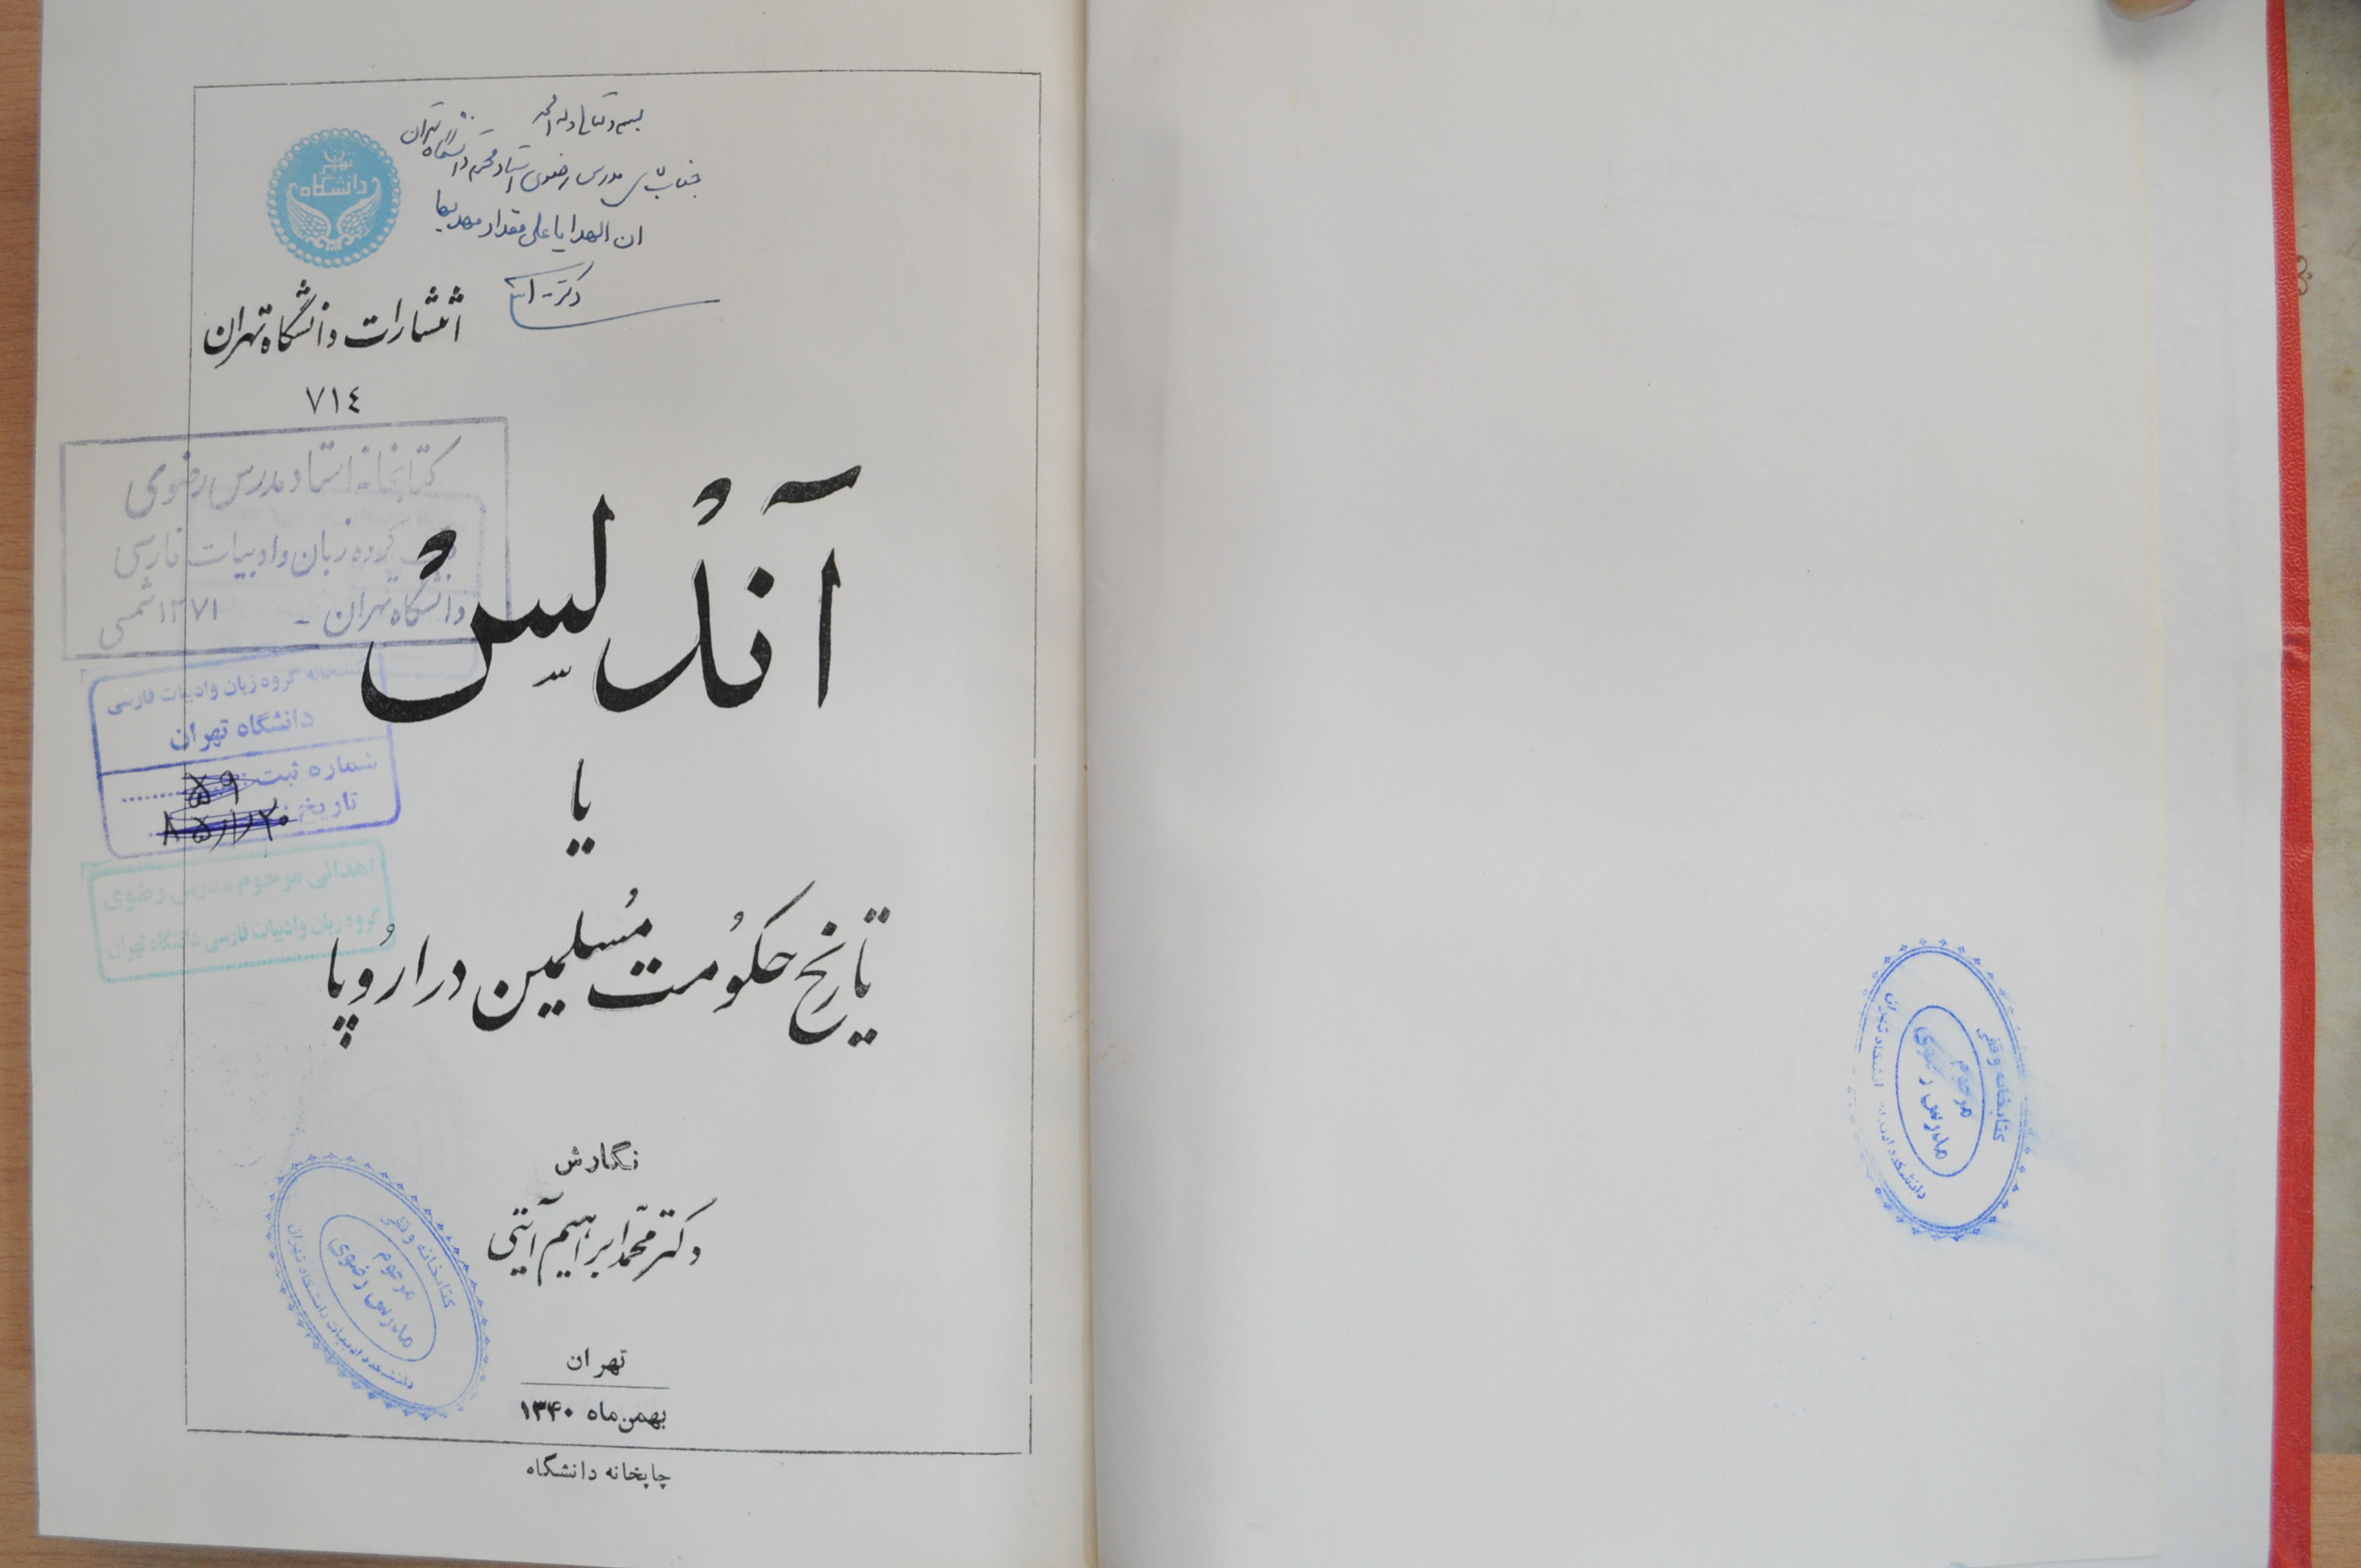 بسمه تعالی وله الحمد
جناب آقای مدرس رضوی استاد محترم دانشگاه تهران
ان الهدایا علی مقدار مهدیها
دکتر آیتی
دانشگاه تهران
انتشارات دانشگاه تهران
۷۱٤
کتابخانه استاد مدرس رضوی
گروه زبان و ادبیات فارسی
دانشگاه تهران - ۱۳۷۱ شمسی
آندلس
کتابخانه گروه زبان وادبیات فارسی
دانشگاه تهران
شماره ثبت: ۵۹
تاریخ: ۸۵/۱/۲۰
یا
اهدائی مرحوم مدرس رضوی
گروه زبان وادبیات فارسی دانشگاه تهران
تاریخ حکومت مسلمین در اروپا
نگارش
دکتر محمد ابراهیم آیتی
کتابخانه وقفی
مرحوم
مدرس رضوی
دانشکده ادبیات دانشگاه تهران
تهران
بهمن ماه ۱۳۴۰
چاپخانه دانشگاه
کتابخانه وقفی
مرحوم
مدرس رضوی
دانشکده ادبیات دانشگاه تهران